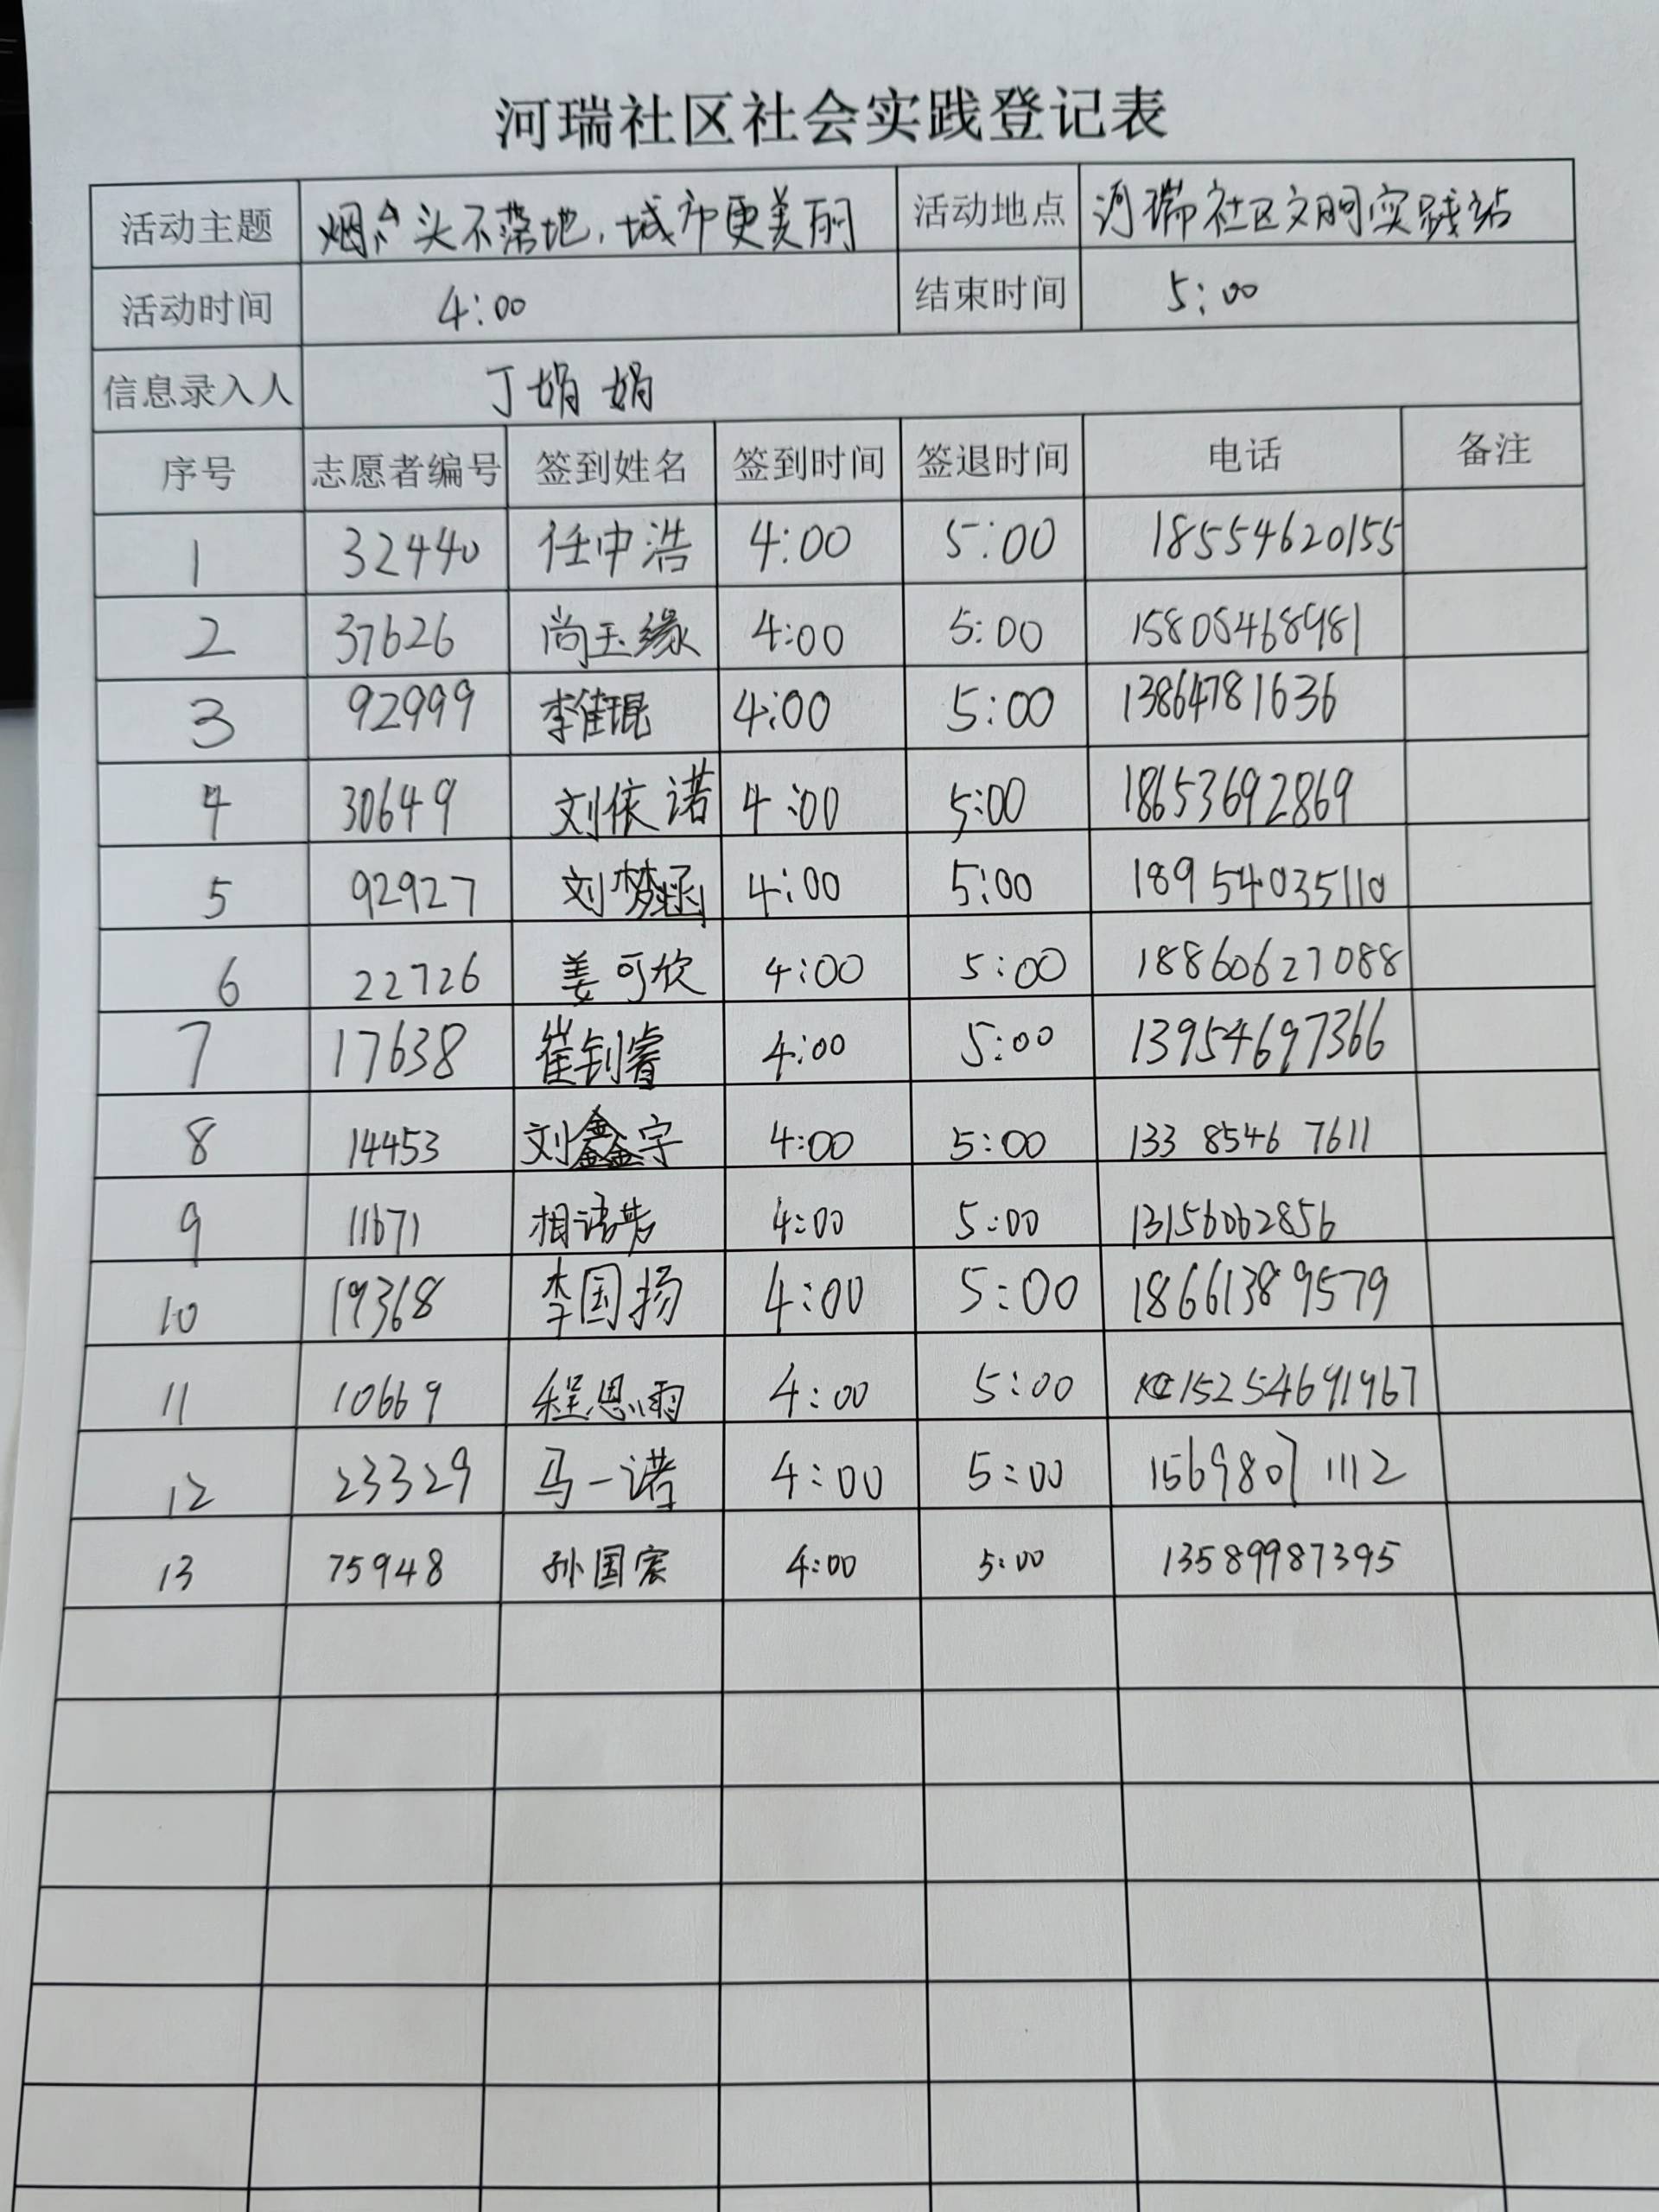 河瑞社区社会实践登记表
活动主题 烟头不落地,城市更美丽 活动地点 河瑞社区文明实践站
活动时间 4:00 结束时间 5:00
信息录入人 丁娟娟
序号 志愿者编号 签到姓名 签到时间 签退时间 电话 备注
1 32440 任中浩 4:00 5:00 18554620155
2 37626 尚玉缘 4:00 5:00 15805468981
3 92999 李佳琨 4:00 5:00 13864781636
4 30649 刘依诺 4:00 5:00 18653692869
5 92927 刘梦涵 4:00 5:00 18954035110
6 22726 姜可欣 4:00 5:00 18860627088
7 17638 崔钊睿 4:00 5:00 13954697366
8 14453 刘鑫宇 4:00 5:00 133 8546 7611
9 11671 相 4:00 5:00 13156062856
10 19368 李国扬 4:00 5:00 18661389579
11 10669 程思雨 4:00 5:00 15254691967
12 23329 马一诺 4:00 5:00 1569807 1112
13 75948 孙国宸 4:00 5:00 13589987395